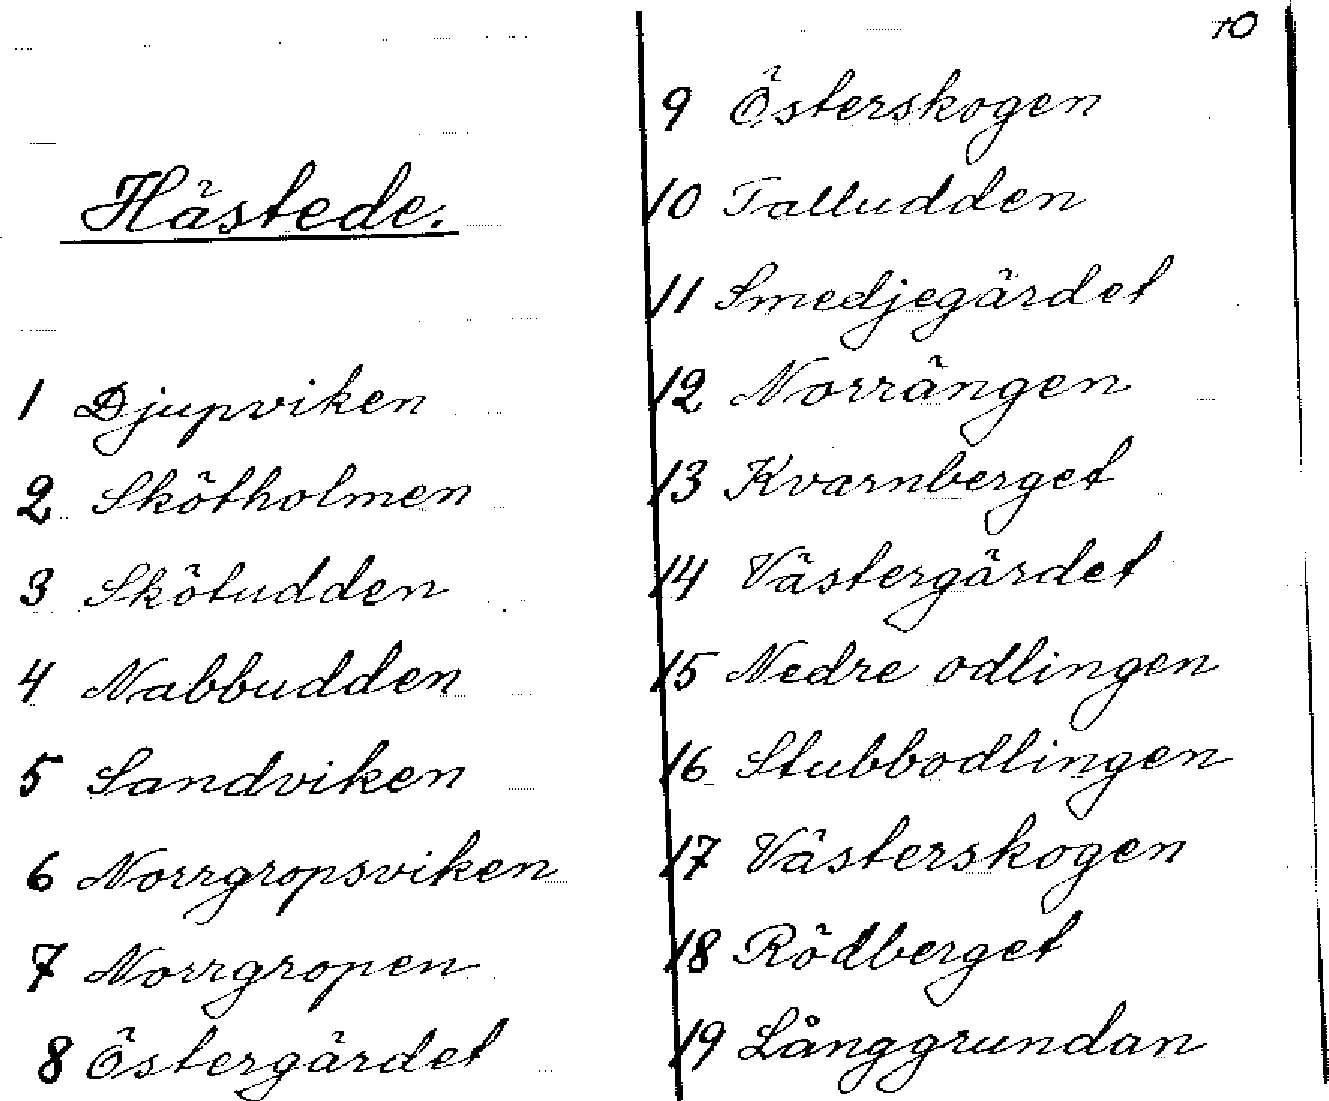 Hästede.
1 Djupviken
2 Skötholmen
3 Skötudden
4 Nabbudden
5 Sandviken
6 Norrgropsviken
7 Norrgropen
8 Östergärdet
10
9 Österskogen
10 Talludden
11 Smedjegärdet
12 Norrängen
13 Kvarnberget
14 Västergärdet
15 Nedre odlingen
16 Stubbodlingen
17 Västerskogen
18 Rödberget
19 Långgrundan